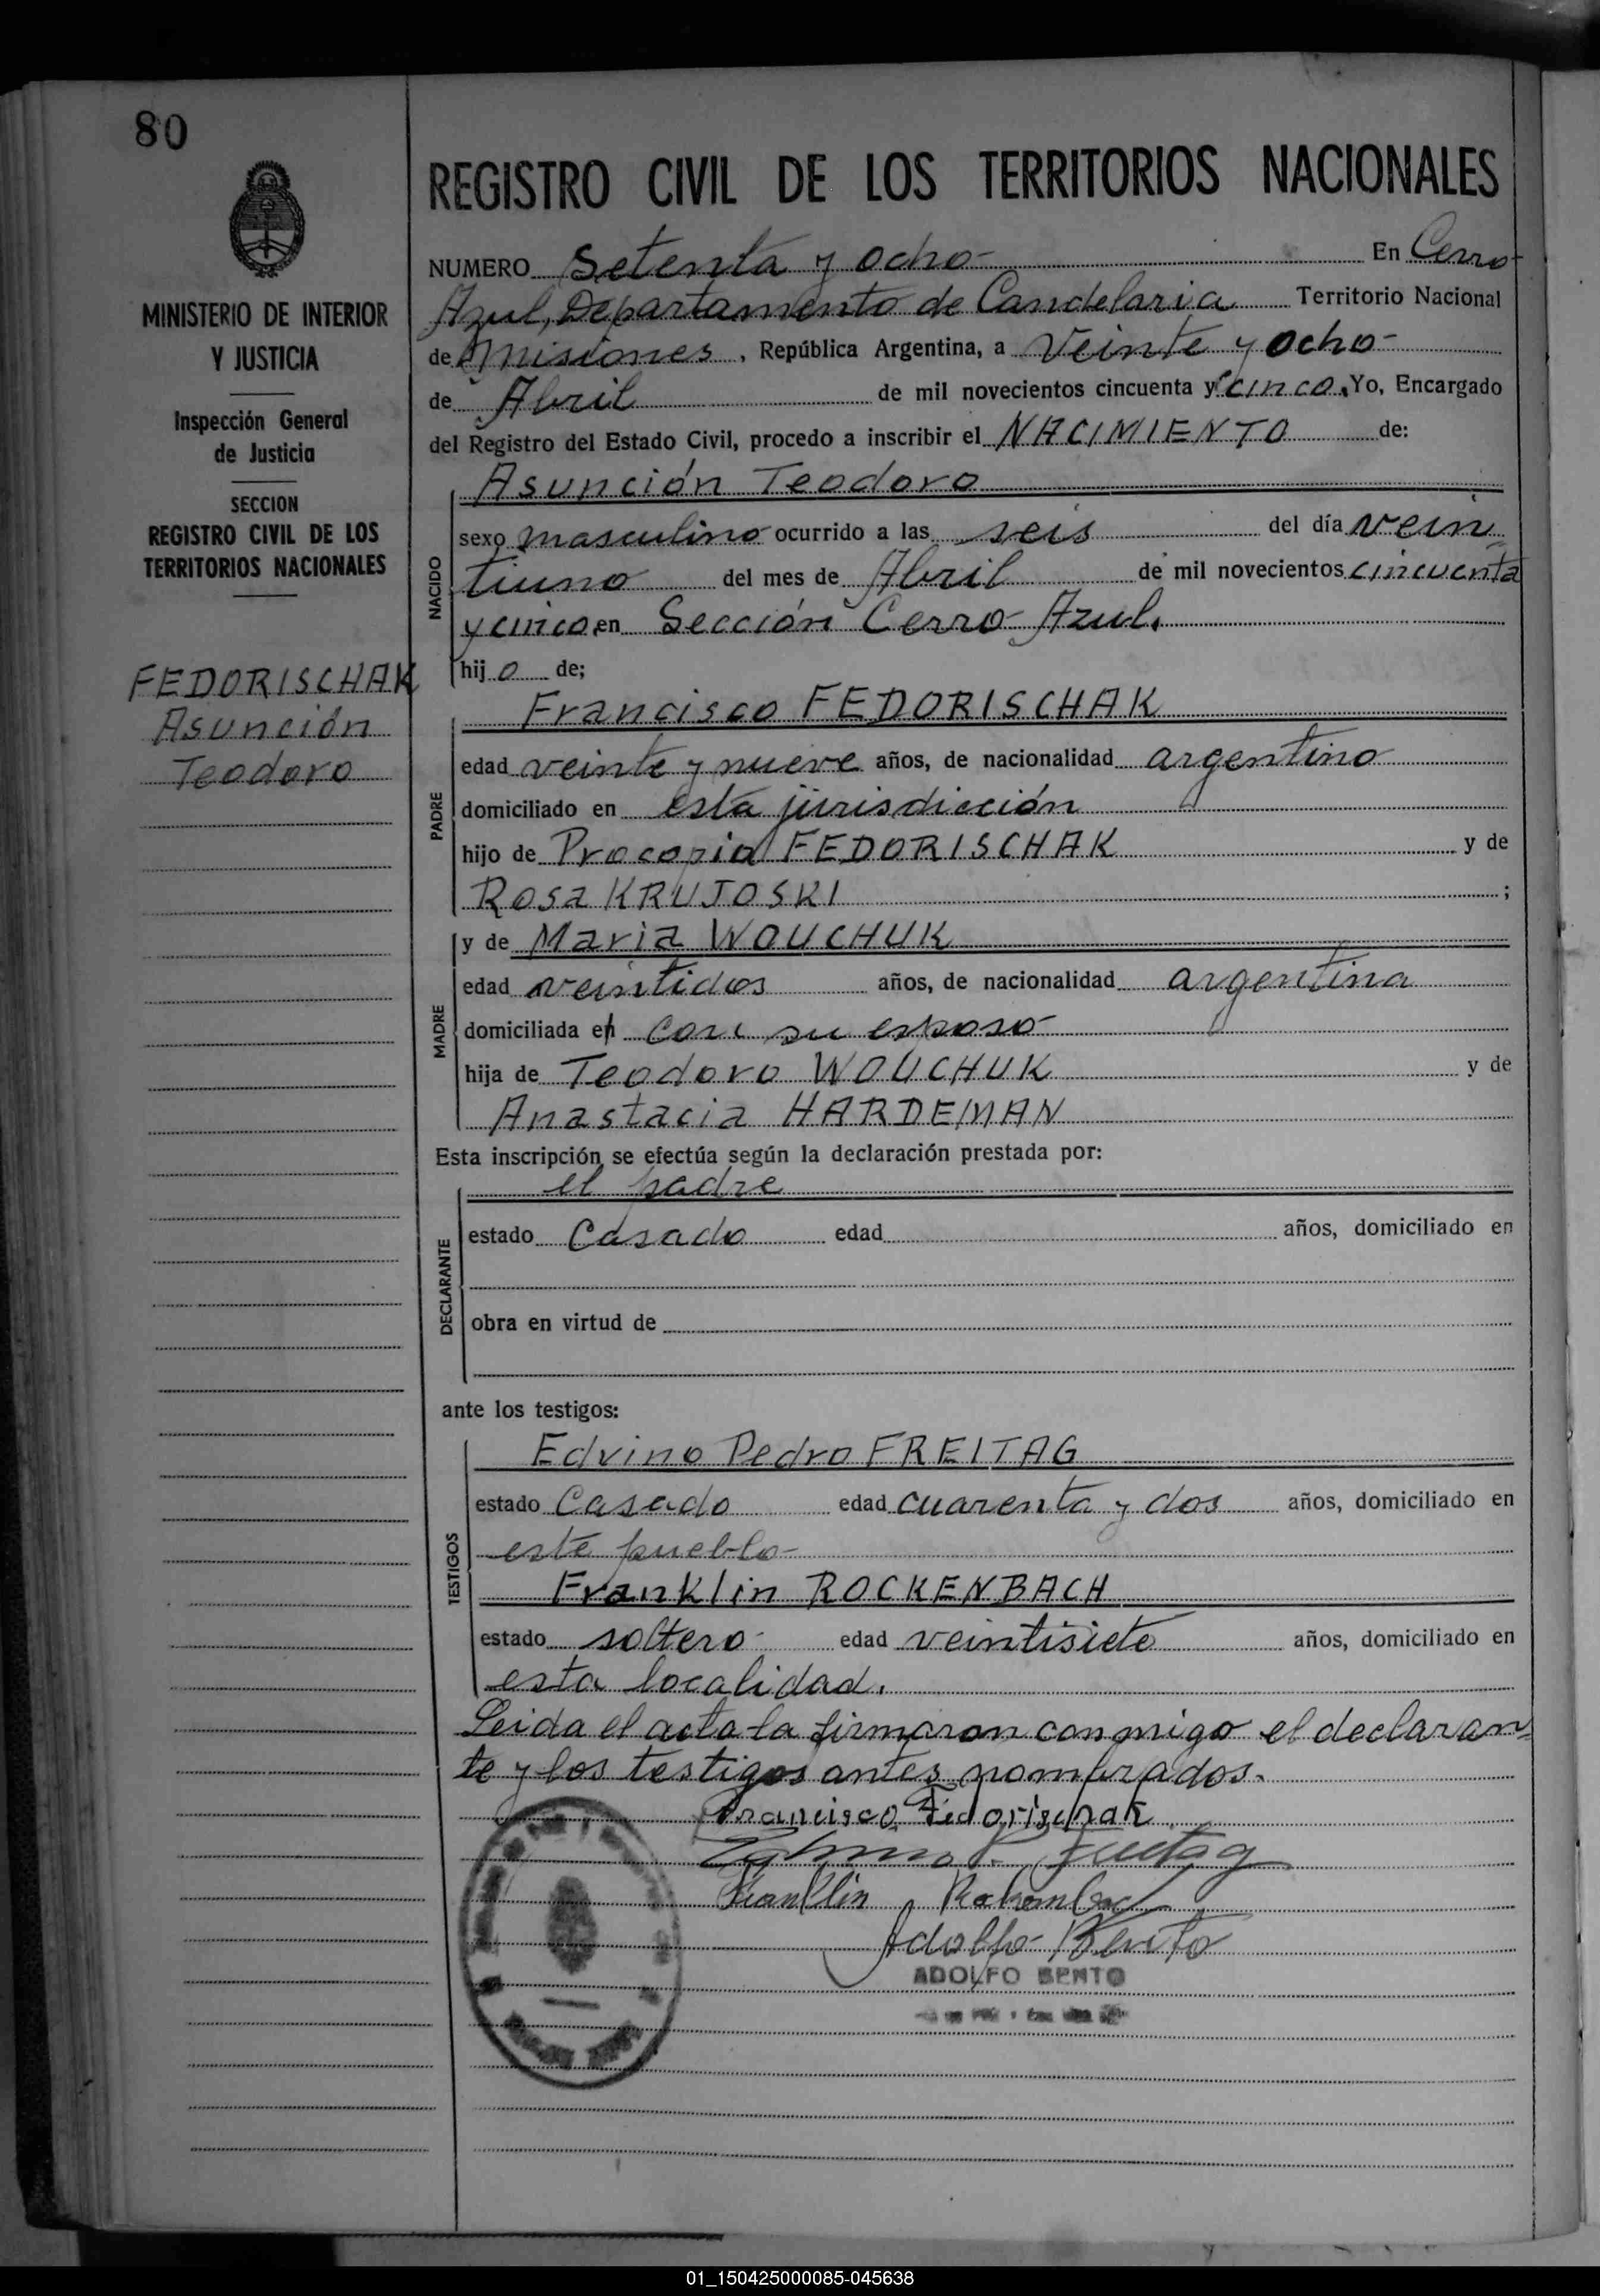 80
MINISTERIO DE INTERIOR
Y JUSTICIA
Inspección General
de Justicia
SECCION
REGISTRO CIVIL DE LOS
TERRITORIOS NACIONALES
FEDORISCHAK
Asunción
Teodoro
REGISTRO CIVIL DE LOS TERRITORIOS NACIONALES
NUMERO Setenta y ocho- En Cerro
Azul, Departamento de Candelaria Territorio Nacional
de Misiones, República Argentina, a Veinte y ocho-
de Abril de mil novecientos cincuenta y cinco, Yo, Encargado
del Registro del Estado Civil, procedo a inscribir el NACIMIENTO de:
Asunción Teodoro
NACIDO
sexo masculino ocurrido a las seis del día vein
tiuno del mes de Abril de mil novecientos cincuenta
y cinco, en Sección Cerro Azul.
hijo de;
Francisco FEDORISCHAK
PADRE
edad veinte y nueve años, de nacionalidad argentino
domiciliado en esta jurisdicción
hijo de Procopio FEDORISCHAK y de
Rosa KRUJOSKI ;
y de Maria WOUCHUK
MADRE
edad veintidos años, de nacionalidad argentina
domiciliada en con su esposo-
hija de Teodoro WOUCHUK y de
Anastacia HARDEMAN
Esta inscripción se efectúa según la declaración prestada por:
el padre
DECLARANTE
estado Casado edad años, domiciliado en
obra en virtud de
ante los testigos:
Edvino Pedro FREITAG
TESTIGOS
estado Casado edad cuarenta y dos años, domiciliado en
este pueblo-
Franklin ROCKENBACH
estado soltero- edad veintisiete años, domiciliado en
esta localidad.
Leida el acta la firmaron conmigo el declaran
te y los testigos antes nombrados.
Francisco Fedorischak
Freitag
Franklin Rockenbach
Adolfo Bento
ADOLFO BENTO
01_150425000085-045638